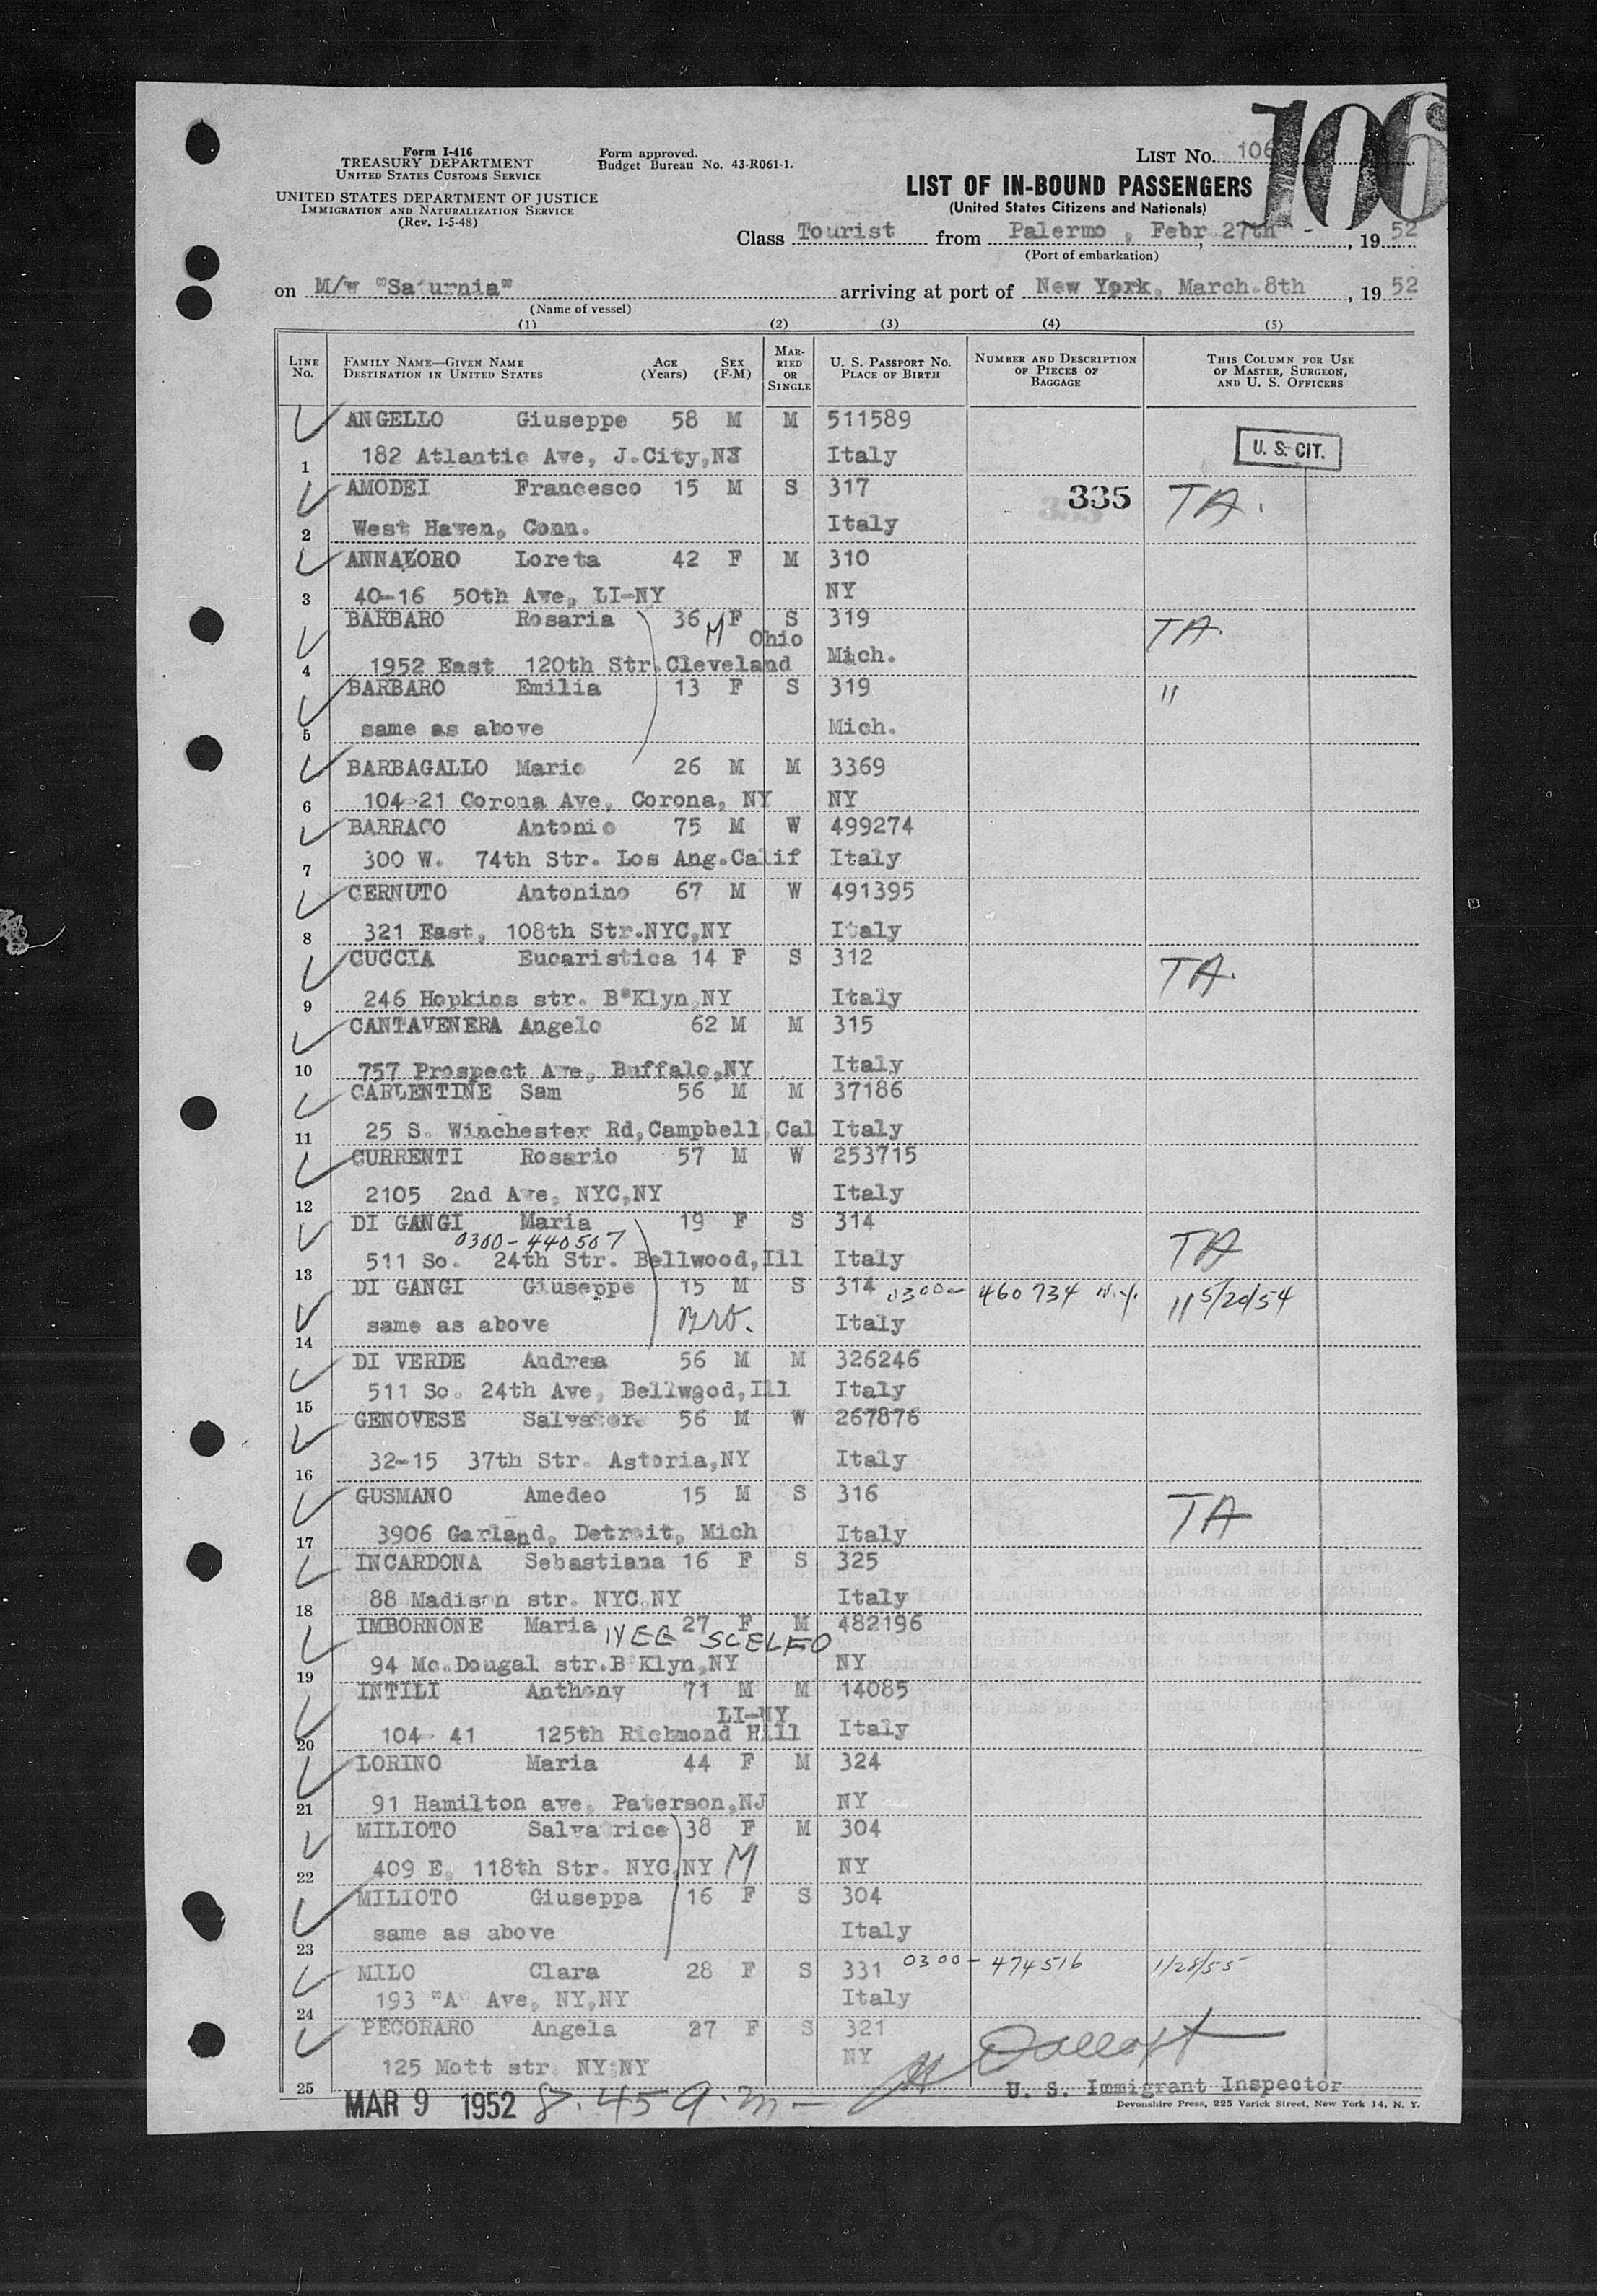 106
Form I-416
TREASURY DEPARTMENT
UNITED STATES CUSTOMS SERVICE
UNITED STATES DEPARTMENT OF JUSTICE
IMMIGRATION AND NATURALIZATION SERVICE
(Rev. 1-5-48)
Form approved.
Budget Bureau No. 43-R061-1.
LIST No. 106
LIST OF IN-BOUND PASSENGERS
(United States Citizens and Nationals)
Class Tourist from Palermo, Febr, 27th -, 19 52
(Port of embarkation)
on M/v "Saturnia" arriving at port of New York, March 8th, 19 52
(Name of vessel)
(1) (2) (3) (4) (5)
LINE No. FAMILY NAME—GIVEN NAME DESTINATION IN UNITED STATES AGE (Years) SEX (F-M) MARRIED OR SINGLE U. S. PASSPORT No. PLACE OF BIRTH NUMBER AND DESCRIPTION OF PIECES OF BAGGAGE THIS COLUMN FOR USE OF MASTER, SURGEON, AND U. S. OFFICERS
ANGELLO Giuseppe 58 M M 511589
1 182 Atlantic Ave, J.City,NJ Italy U. S. CIT.
AMODEI Francesco 15 M S 317 335 TA.
2 West Haven, Conn. Italy
ANNALORO Loreta 42 F M 310
3 40-16 50th Ave, LI-NY NY
BARBARO Rosaria 36 M F S 319 TA.
Ohio
4 1952 East 120th Str.Cleveland Mich.
BARBARO Emilia 13 F S 319 "
5 same as above Mich.
BARBAGALLO Mario 26 M M 3369
6 104-21 Corona Ave, Corona, NY NY
BARRACO Antonio 75 M W 499274
7 300 W. 74th Str. Los Ang.Calif Italy
CERNUTO Antonino 67 M W 491395
8 321 East, 108th Str.NYC,NY Italy
CUCCIA Eucaristica 14 F S 312 TA.
9 246 Hopkins str. B"Klyn,NY Italy
CANTAVENERA Angelo 62 M M 315
10 757 Prospect Ave, Buffalo,NY Italy
CARLENTINE Sam 56 M M 37186
11 25 S. Winchester Rd,Campbell,Cal Italy
CURRENTI Rosario 57 M W 253715
12 2105 2nd Ave, NYC,NY Italy
DI GANGI Maria 19 F S 314 TA
0300-440507
13 511 So. 24th Str. Bellwood,Ill Italy
DI GANGI Giuseppe 15 M S 314 0300- 460734 N.Y. " 5/20/54
14 same as above Bro. Italy
DI VERDE Andrea 56 M M 326246
15 511 So. 24th Ave, Bellwood,Ill Italy
GENOVESE Salvatore 56 M W 267876
16 32-15 37th Str. Astoria,NY Italy
GUSMANO Amedeo 15 M S 316 TA
17 3906 Garland, Detroit, Mich Italy
INCARDONA Sebastiana 16 F S 325
18 88 Madison str. NYC,NY Italy
IMBORNONE Maria 27 F M 482196
NEE SCELFO
19 94 Mc.Dougal str.B'Klyn,NY NY
INTILI Anthony 71 M M 14085
LI-NY
20 104- 41 125th Richmond Hill Italy
LORINO Maria 44 F M 324
21 91 Hamilton ave, Paterson,NJ NY
MILIOTO Salvatrice 38 F M 304
22 409 E, 118th Str. NYC,NY M NY
MILIOTO Giuseppa 16 F S 304
23 same as above Italy
MILO Clara 28 F S 331 0300- 474516 1/28/55
24 193 "A" Ave, NY,NY Italy
PECORARO Angela 27 F S 321
125 Mott str. NY;NY NY
25 U. S. Immigrant Inspector
MAR 9 1952 8.45 a.m-
Devonshire Press, 225 Varick Street, New York 14, N. Y.